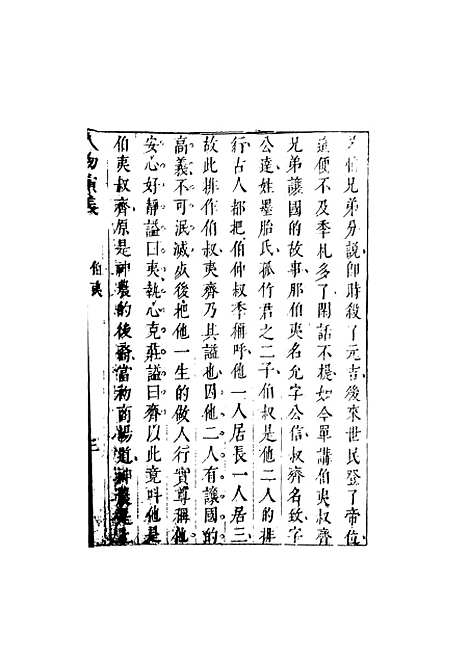 兄弟分說卽時殺了元吉後來世民登了帝位
這便不及季札多了閑話不提如今單講伯夷叔齊
兄弟讓國的故事那伯夷名允字公信叔齊名致字
公達姓墨胎氏孤竹君之二子伯叔是他二人的排
行古人都把伯仲叔季稱呼他一人居長一人居三
故此排作伯叔夷齊乃其謚也因他二人有讓國的
高義不可泯滅故後把他一生的做人行實尊稱他
安心好靜謚曰夷執心克莊謚曰齊以此竟呌他是
伯夷叔齊原是神農的後裔當初商湯道神農
人物演義
伯夷
三